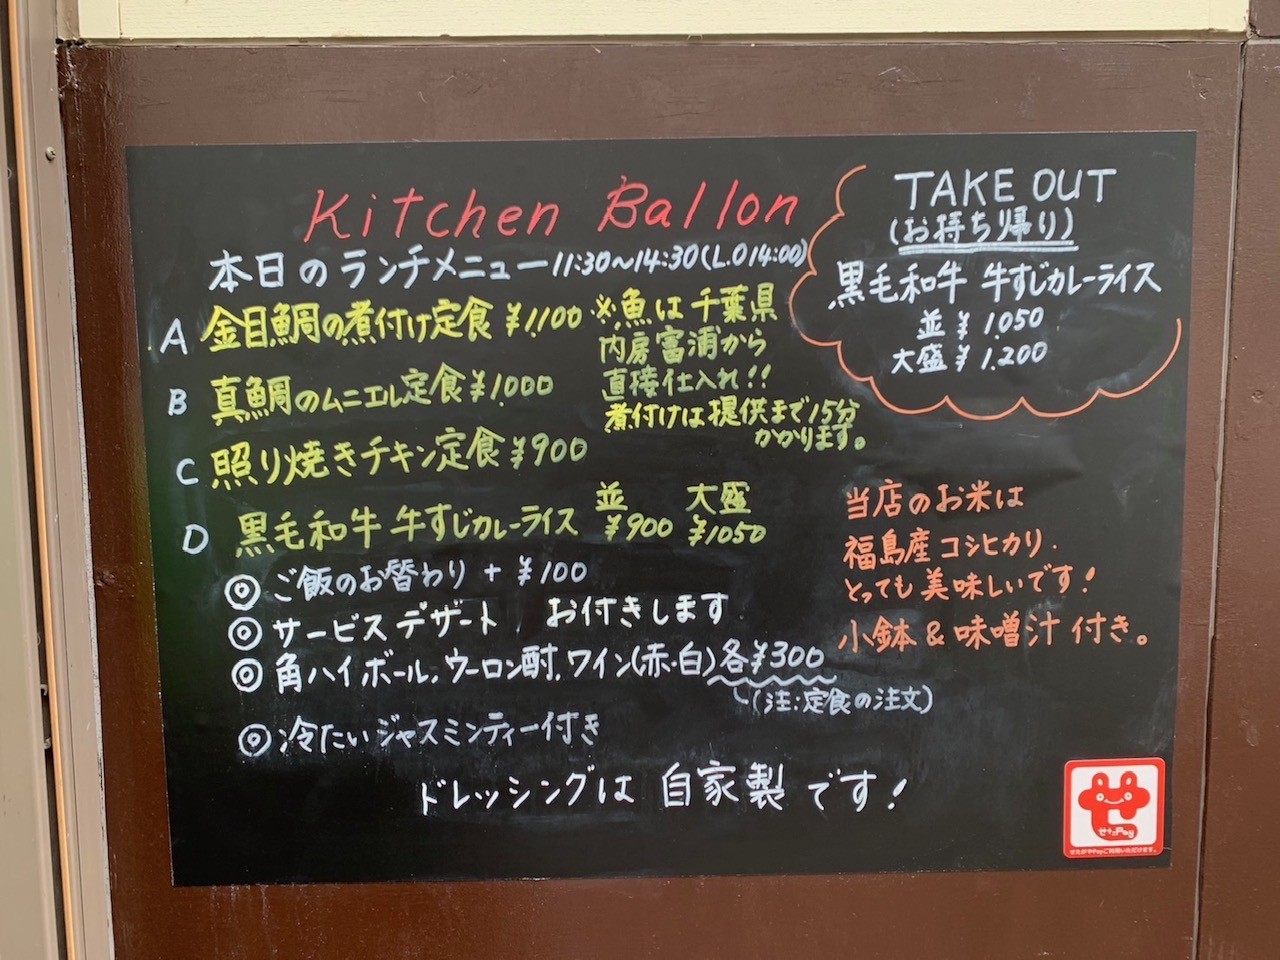 Kitchen Ballon
本日のランチメニュー 11:30～14:30(L.O 14:00)
A 金目鯛の煮付け定食 ¥1100
B 真鯛のムニエル定食 ¥1,000
C 照り焼きチキン定食 ¥900
並 大盛
D 黒毛和牛 牛すじカレーライス ¥900 ¥1050
※魚は千葉県
内房富浦から
直接仕入れ!!
煮付けは提供まで15分
かかります。
◎ご飯のお替わり + ¥100
◎サービスデザート お付きします
◎角ハイボール,ウーロン酎,ワイン(赤・白)各¥300
(注:定食の注文)
◎冷たいジャスミンティー付き
ドレッシングは 自家製です!
TAKE OUT
(お持ち帰り)
黒毛和牛 牛すじカレーライス
並 ¥1.050
大盛 ¥1.200
当店のお米は
福島産コシヒカリ.
とっても美味しいです!
小鉢&味噌汁付き。
せたPay
せたがやPayご利用いただけます。